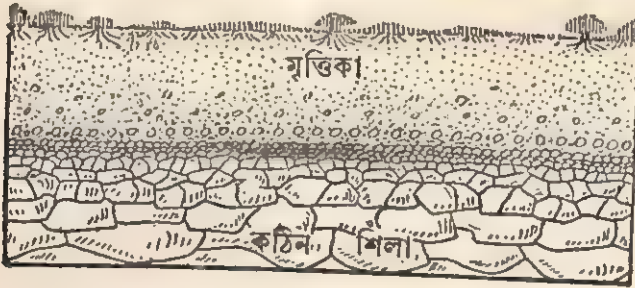 মৃত্তিকা
কঠিন শিলা